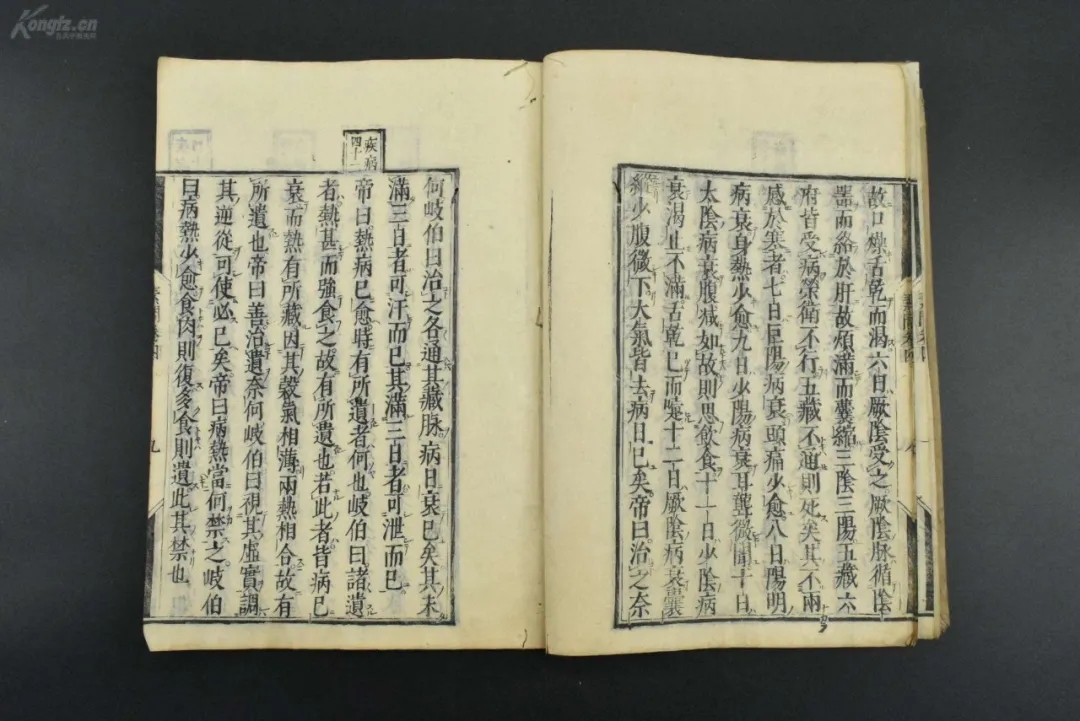 Kongfz.cn
故口燥舌乾而渴六日厥陰受之厥陰脉循陰
器而絡於肝故煩滿而囊縮三陰三陽五藏六
府皆受病榮衛不行五藏不通則死矣其不兩
感於寒者七日巨陽病衰頭痛少愈八日陽明
病衰身熱少愈九日少陽病衰耳聾微聞十日
太陰病衰腹減如故則思飲食十一日少陰病
衰渴止不滿舌乾已而嚏十二日厥陰病衰囊
縱少腹微下大氣皆去病日已矣帝曰治之奈
疾病
四十二
何岐伯曰治之各通其藏脉病日衰已矣其未
滿三日者可汗而已其滿三日者可泄而已
帝曰熱病已愈時有所遺者何也岐伯曰諸遺
者熱甚而強食之故有所遺也若此者皆病已
衰而熱有所藏因其穀氣相薄兩熱相合故有
所遺也帝曰善治遺奈何岐伯曰視其虛實調
其逆從可使必已矣帝曰病熱當何禁之岐伯
曰病熱少愈食肉則復多食則遺此其禁也
九